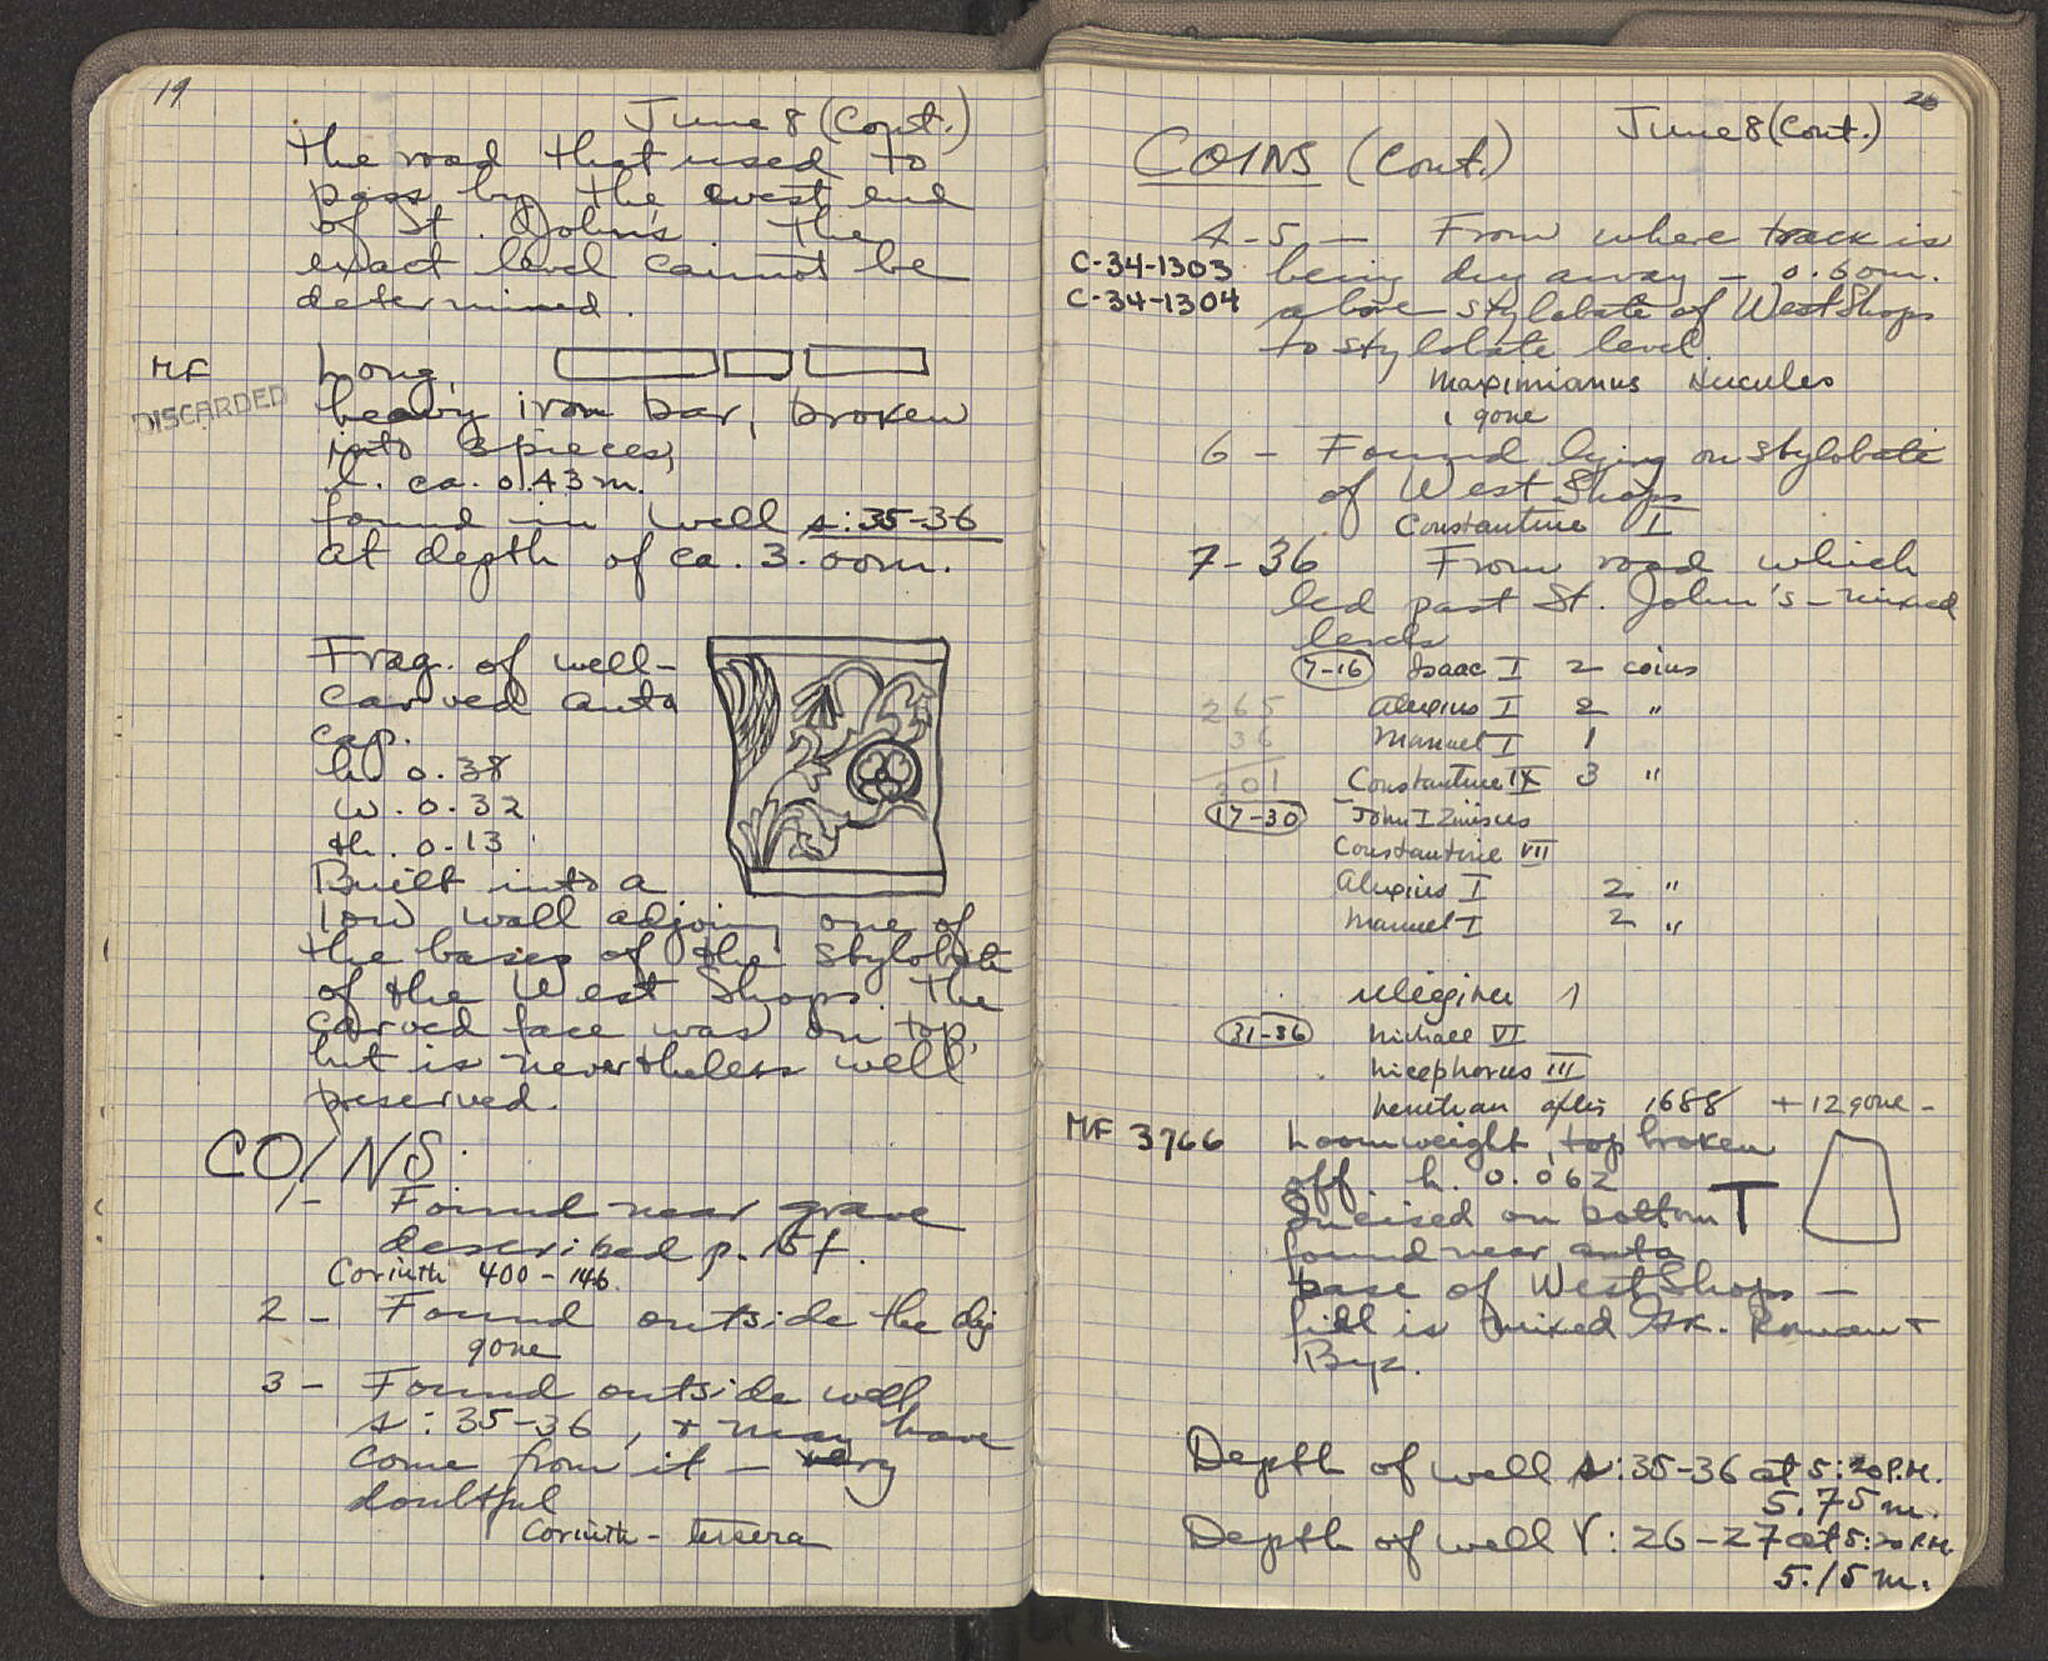 19
June 8 (Cont.)
the road that used to
pass by the west end
of St. John's. The
exact level cannot be
determined.
MF
DISCARDED
Long,
heavy iron bar, broken
into 3 pieces,
l. ca. 0.43 m.
found in well s:35-36
at depth of ca. 3.00m.
Frag. of well-
carved anta
cap.
h. 0.38
w. 0.32
th. 0.13
Built into a
low wall adjoing one of
the bases of the stylobate
of the West Shops. The
carved face was on top,
but is nevertheless well
preserved.
COINS:
1- Found near grave
described p. 15f.
Corinth 400-146.
2 - Found outside the dig
gone
3 - Found outside well
s:35-36, + may have
come from it - very
doubtful
Corinth - tessera
20
June 8 (Cont.)
COINS (Cont.)
4-5 - From where track is
C-34-1303 being dug away - 0.60m.
C-34-1304 above stylobate of West Shops
to stylobate level.
Maximianus Hercules
1 gone
6 - Found lying on stylobate
of West Shops
Constantine I
7-36 From road which
led past St. John's - mixed
levels
7-16 Isaac I 2 coins
265
36
201
Alexius I 2 "
Manuel I 1
Constantine IX 3 "
17-30 John I Zimisces
Constantine VII
Alexius I 2 "
Manuel I 2 "
1
31-36 Michael VI
Nicephorus III
Venetian after 1688 + 12 gone -
MF 3766 Loomweight, top broken
off h. 0.062
Incised on bottom T
found near anta
base of West Shops -
fill is mixed Gk. Roman +
Byz.
Depth of well s:35-36 at 5:20 P.M.
5.75 m.
Depth of well Y:26-27 at 5:20 P.M.
5.15 m.